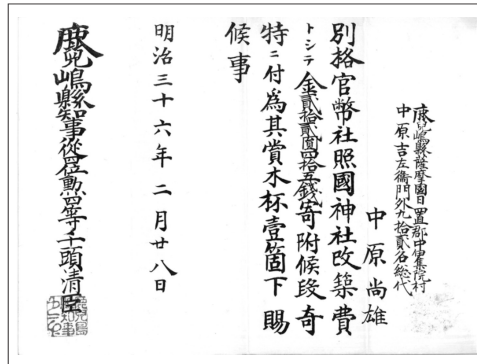 鹿児嶋縣薩摩國日置郡中伊集院村
中原吉左衛門外九拾貳名総代
中原尚雄
別格官幣社照國神社改築費
トシテ金貳拾貳圓四拾五銭寄附候段奇
特ニ付為其賞木杯壹箇下賜
候事
明治三十六年二月廿八日
鹿児嶋縣知事従四位勲四等千頭清臣